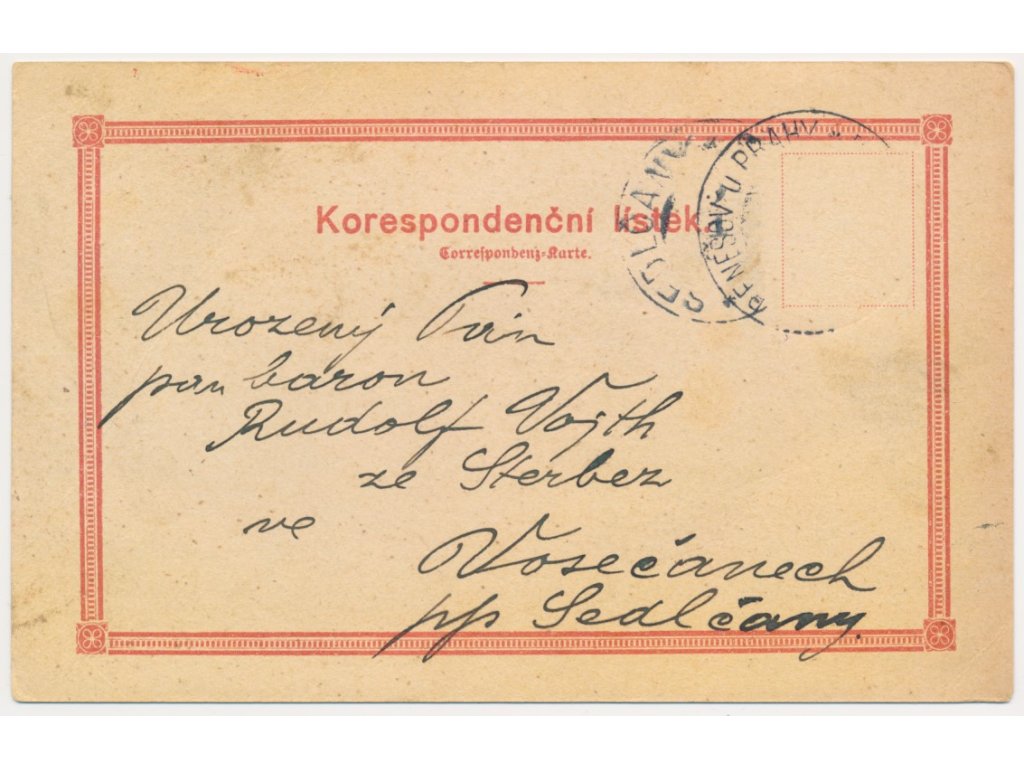 Korespondenční lístek.
Correspondenz-Karte.
SEDLČANY
BENEŠOV U PRAHY
Urozený Pán
pan baron
Rudolf Vojth
ze Sterbez
ve
Vosečanech
pp Sedlčany.